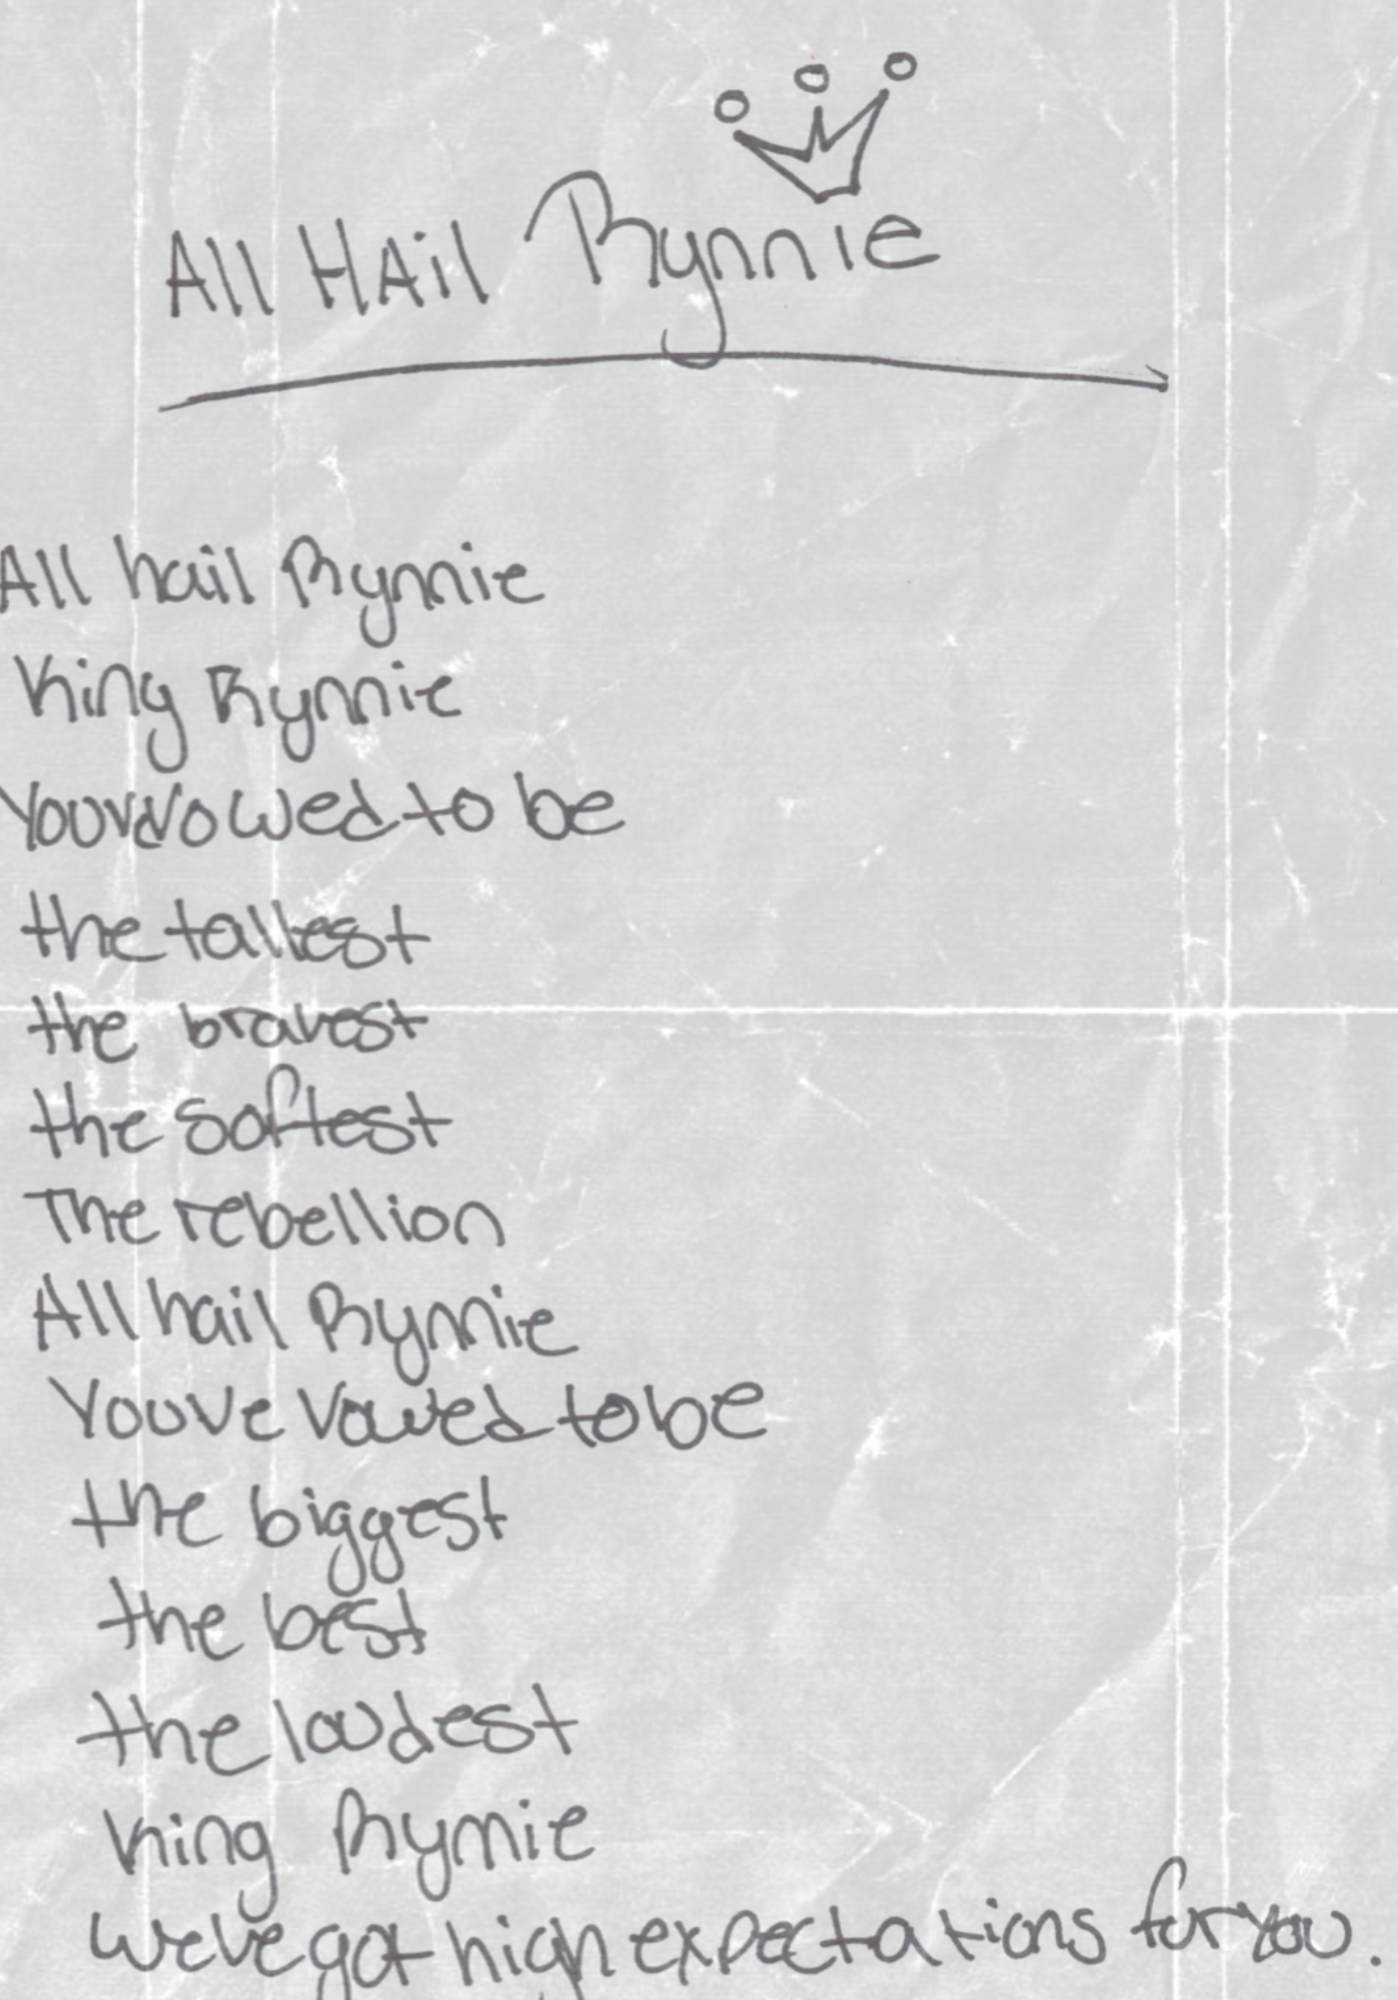 All HAil Rynnie
All hail Rynnie
King Rynnie
You vowed to be
the tallest
the bravest
the softest
The rebellion
All hail Rynnie
Youve vowed to be
the biggest
the best
the loudest
King Rynnie
We've got high expectations for you.